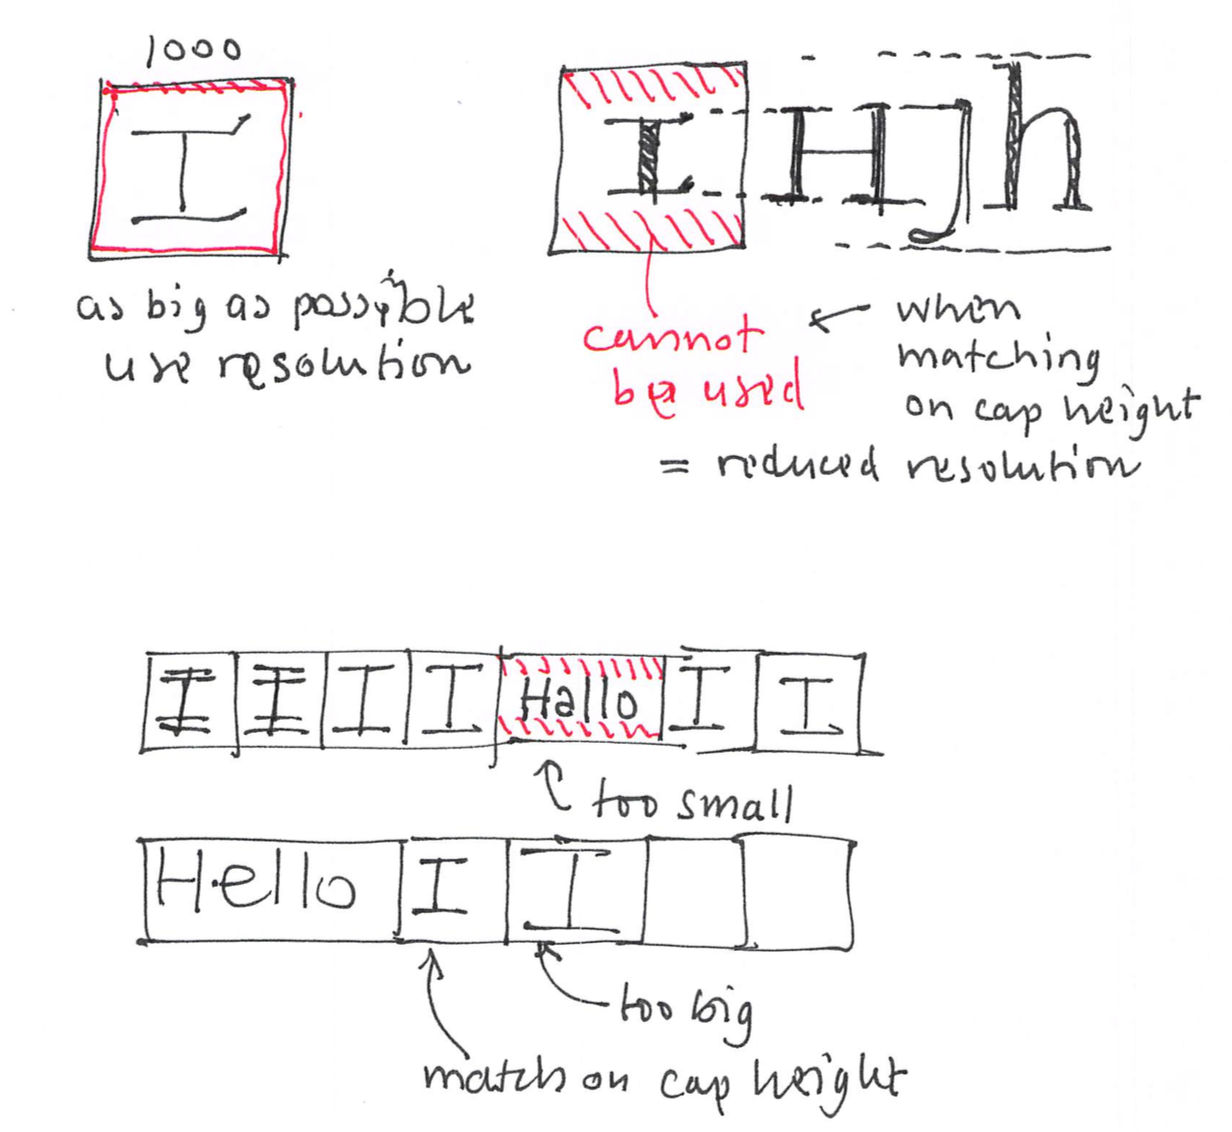 1000
I
I H J h
as big as possible
use resolution
cannot
be used
when
matching
on cap height
= reduced resolution
I I I I Hallo I I
too small
Hello I I
too big
match on cap height